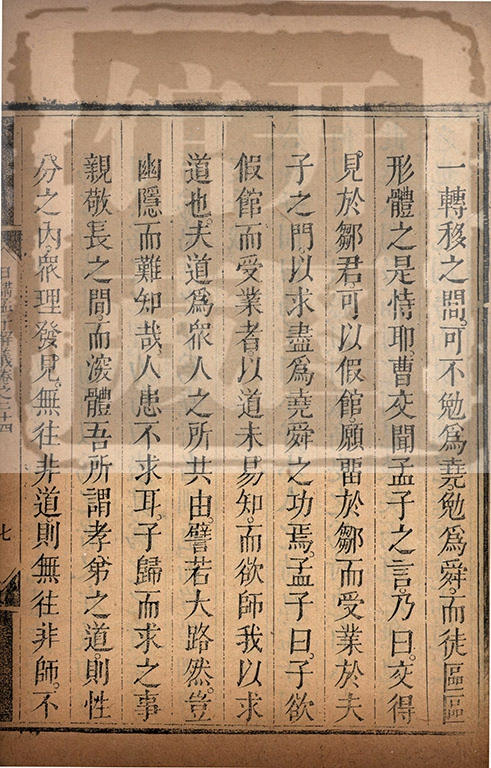 一轉移之間。可不勉為堯勉為舜。而徒區區
形體之是恃耶。曹交聞孟子之言。乃曰。交得
見於鄒君。可以假館。願畱於鄒而受業於夫
子之門。以求盡為堯舜之功焉。孟子曰。子欲
假館而受業者。以道未易知。而欲師我以求
道也。夫道為眾人之所共由。譬若大路然。豈
幽隱而難知哉。人患不求耳。子歸而求之事
親敬長之間。而深體吾所謂孝弟之道。則性
分之內。眾理發見。無往非道。則無往非師。不
日講孟子解義卷之二十四
七